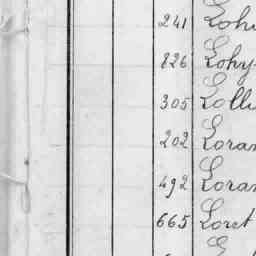 241 Lohi
826 Lohy
305 Lolli
202 Loran
492 Loran
665 Loret